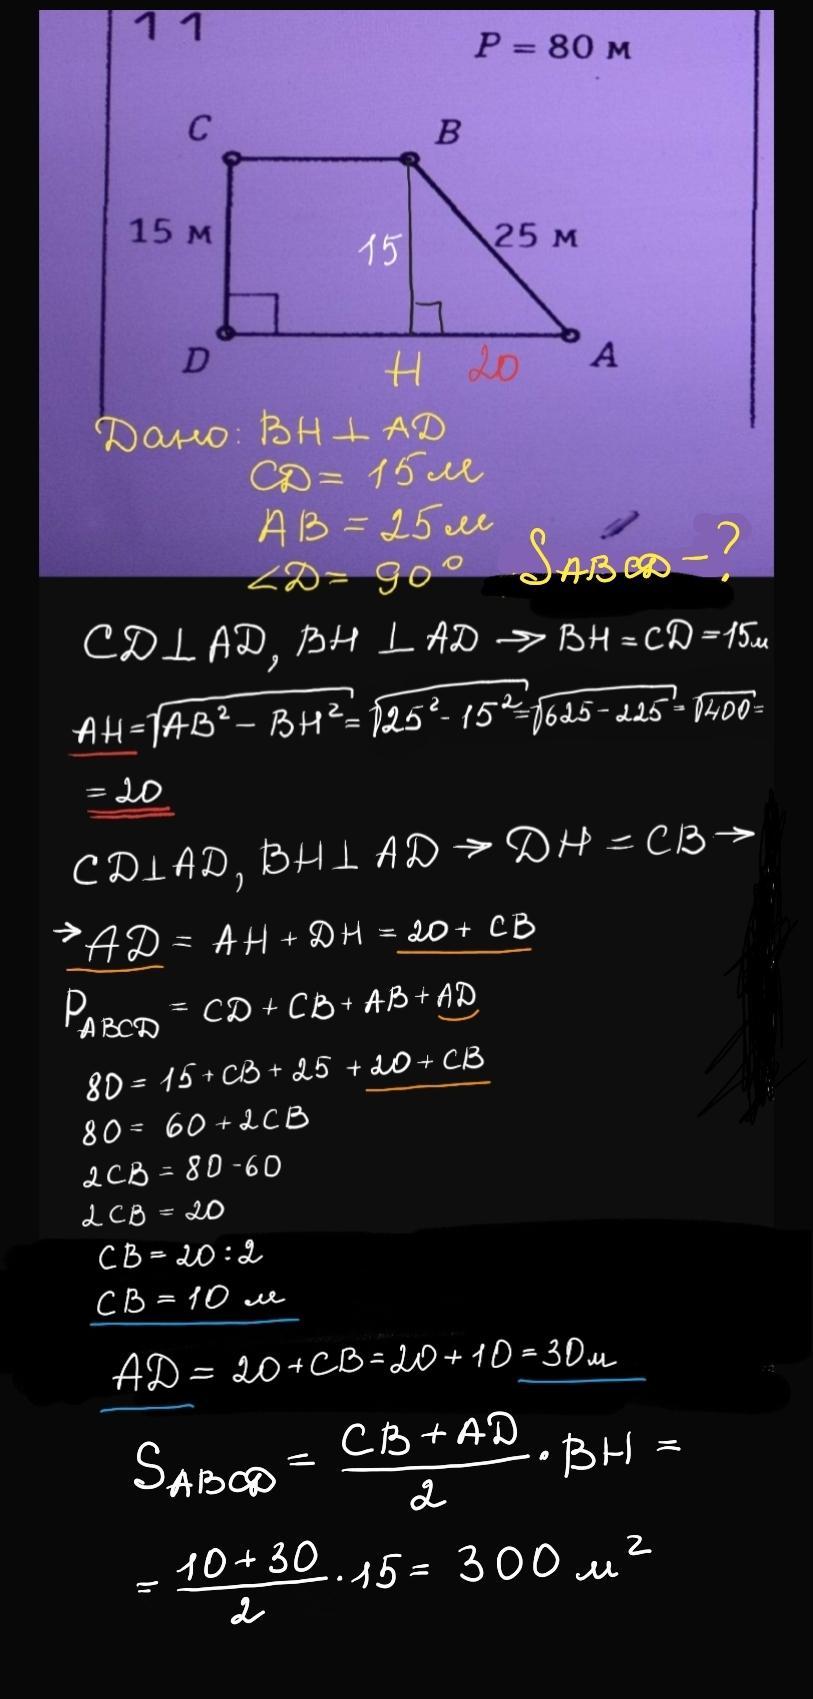 11
P = 80 м
C
B
15 м
15
25 м
D
H
20
A
Дано: BH ⊥ AD
CD = 15 м
AB = 25 м
S ABCD - ?
∠D = 90°
CD ⊥ AD, BH ⊥ AD → BH = CD = 15 м
AH = √AB² - BH² = √25² - 15² = √625 - 225 = √400 =
= 20
CD ⊥ AD, BH ⊥ AD → DH = CB →
→ AD = AH + DH = 20 + CB
P ABCD = CD + CB + AB + AD
80 = 15 + CB + 25 + 20 + CB
80 = 60 + 2CB
2CB = 80 - 60
2CB = 20
CB = 20 : 2
CB = 10 м
AD = 20 + CB = 20 + 10 = 30 м
S ABCD = (CB + AD)/2 · BH =
= (10 + 30)/2 · 15 = 300 м²